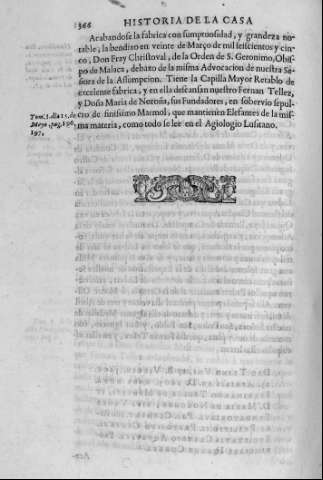 366 HISTORIA DE LA CASA
Acabandose la fabrica con sumptuosidad, y grandeza no-
table, la bendixo en veinte de Março de mil seiscientos y cin-
co, Don Fray Christoval, de la Orden de S. Geronimo, Obis-
po de Malaca, debaxo de la misma Advocacion de nuestra Se-
ñora de la Assumpcion. Tiene la Capilla Mayor Retablo de
excelente fabrica, y en ella descansan nuestro Fernan Tellez,
y Doña Maria de Noroña, sus Fundadores, en sobervio sepul-
Tom. 3. dia 25. de
cro de finissimo Marmol, que mantienen Elefantes de la mis-
Mayo, pag.
ma materia, como todo se lee en el Agiologio Lusitano.
197.